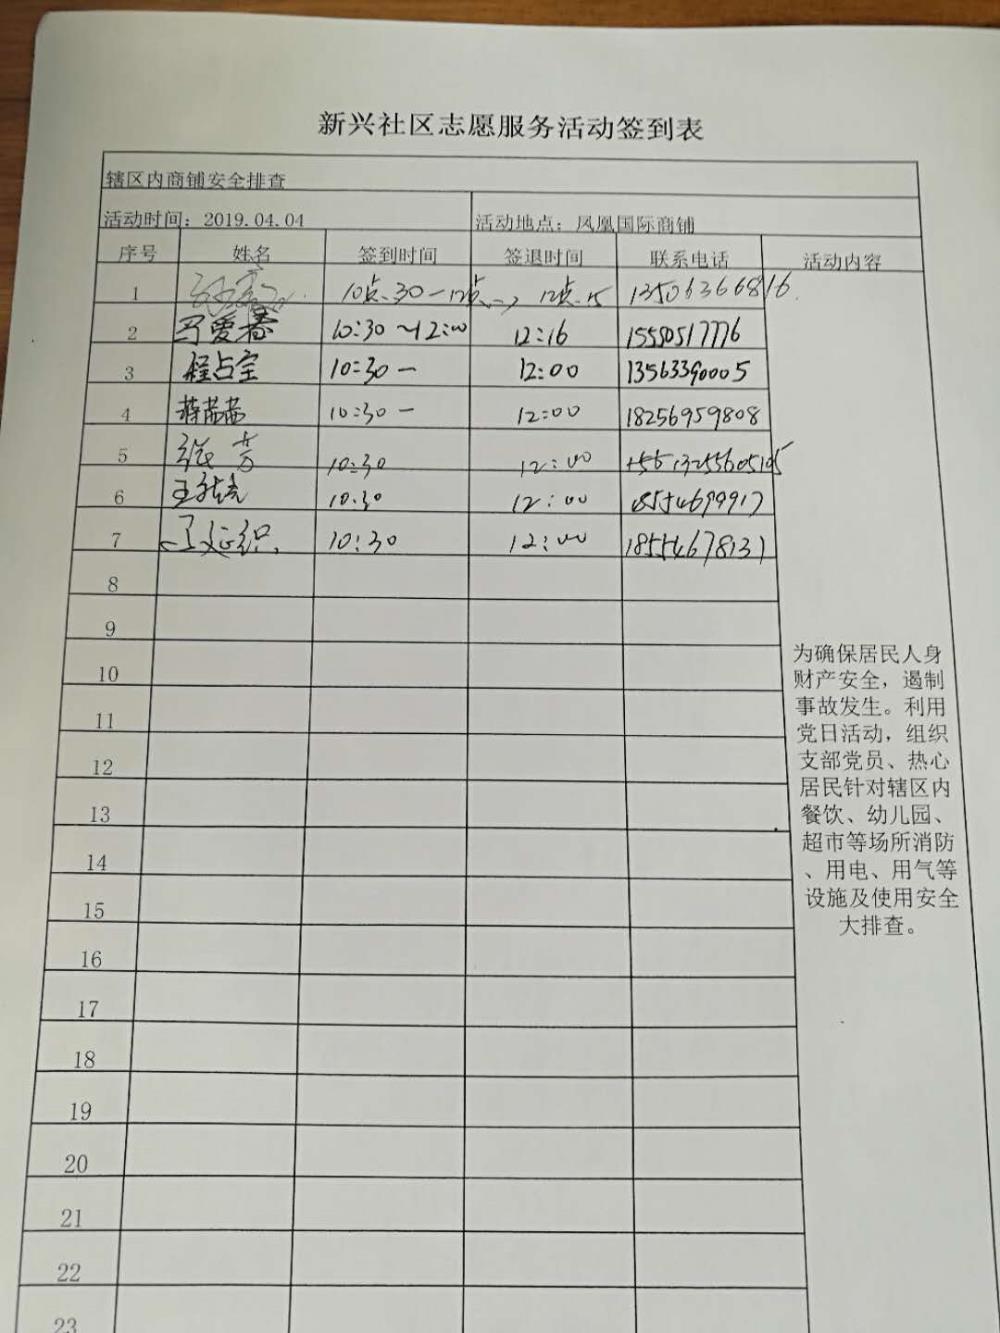 新兴社区志愿服务活动签到表
辖区内商铺安全排查
活动时间：2019.04.04 活动地点：凤凰国际商铺
序号 姓名 签到时间 签退时间 联系电话 活动内容
1 10点.30－12点 12点.15 13506366816
2 马爱春 10:30～12:00 12:16 15550517776
3 程占宝 10:30－ 12:00 13563390005
4 蒋茜茜 10:30－ 12:00 18256959808
5 张芳 10:30 12:00
6 10:30 12:00 18554699917
7 10:30 12:00 18554678131
8
9
10
11
12
13
14
15
16
17
18
19
20
21
22
23
为确保居民人身
财产安全，遏制
事故发生。利用
党日活动，组织
支部党员、热心
居民针对辖区内
餐饮、幼儿园、
超市等场所消防
、用电、用气等
设施及使用安全
大排查。